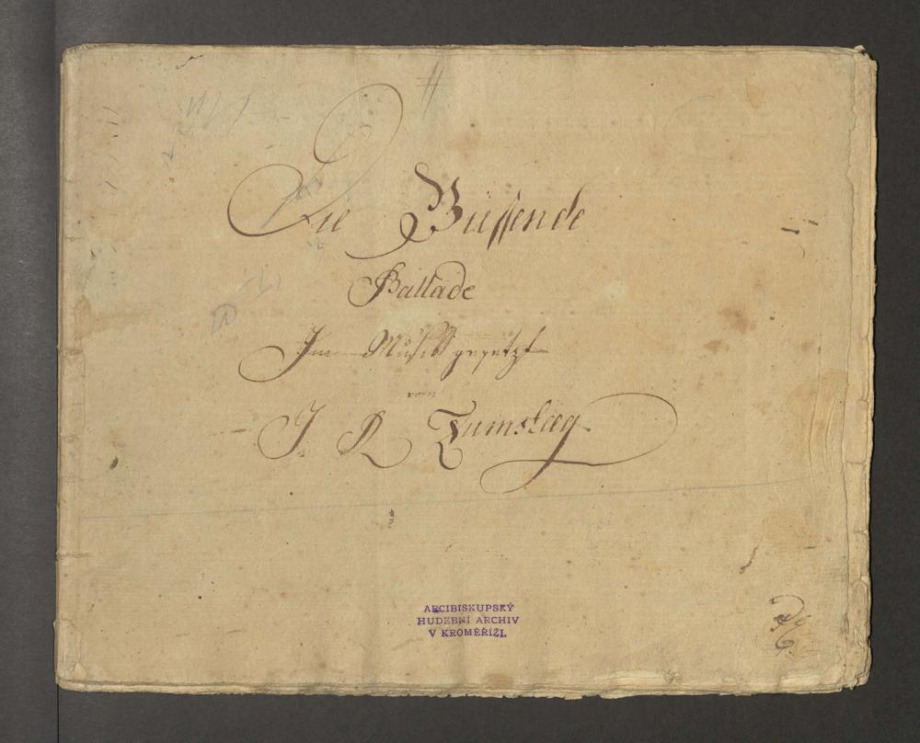 Die Büssende
Ballade
Im Musik gesetzt
vom
J R Zumsteg
ARCIBISKUPSKÝ
HUDEBNÍ ARCHIV
V KROMĚŘÍŽI.